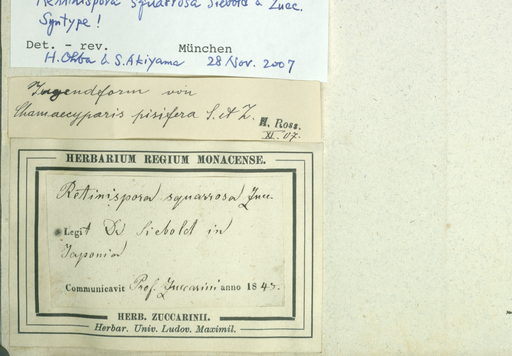 Retinispora squarrosa Siebold & Zucc.
Syntype!
Det. - rev. München
H. Ohba & S. Akiyama 28 Nov. 2007
Jugendform von
Chamaecyparis pisifera S. et Z.
H. Ross.
XI. 07.
HERBARIUM REGIUM MONACENSE.
Retinispora squarrosa Zucc.
Legit Dr Siebold in
Japonia
Communicavit Prof. Zuccarini anno 1843.
HERB. ZUCCARINII.
Herbar. Univ. Ludov. Maximil.